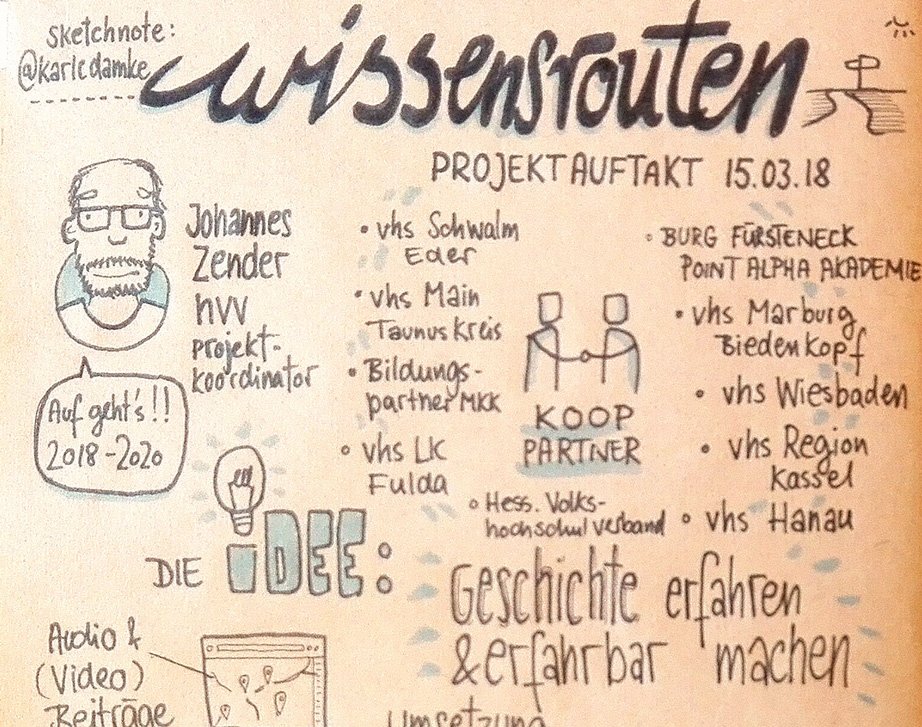 sketchnote:
@karlcdamke
wissensrouten
PROJEKTAUFTAKT 15.03.18
Johannes
Zender
hvv
projekt-
koordinator
Auf geht's!!
2018-2020
• vhs Schwalm
Eder
• vhs Main
Taunus Kreis
• Bildungs-
partner MKK
• vhs LK
Fulda
• Hess. Volks-
hochschulverband
KOOP
PARTNER
• BURG FÜRSTENECK
POINT ALPHA AKADEMIE
• vhs Marburg
Biedenkopf
• vhs Wiesbaden
• vhs Region
Kassel
• vhs Hanau
DIE IDEE:
Geschichte erfahren
& erfahrbar machen
Audio &
(Video)
Beiträge
Umsetzung